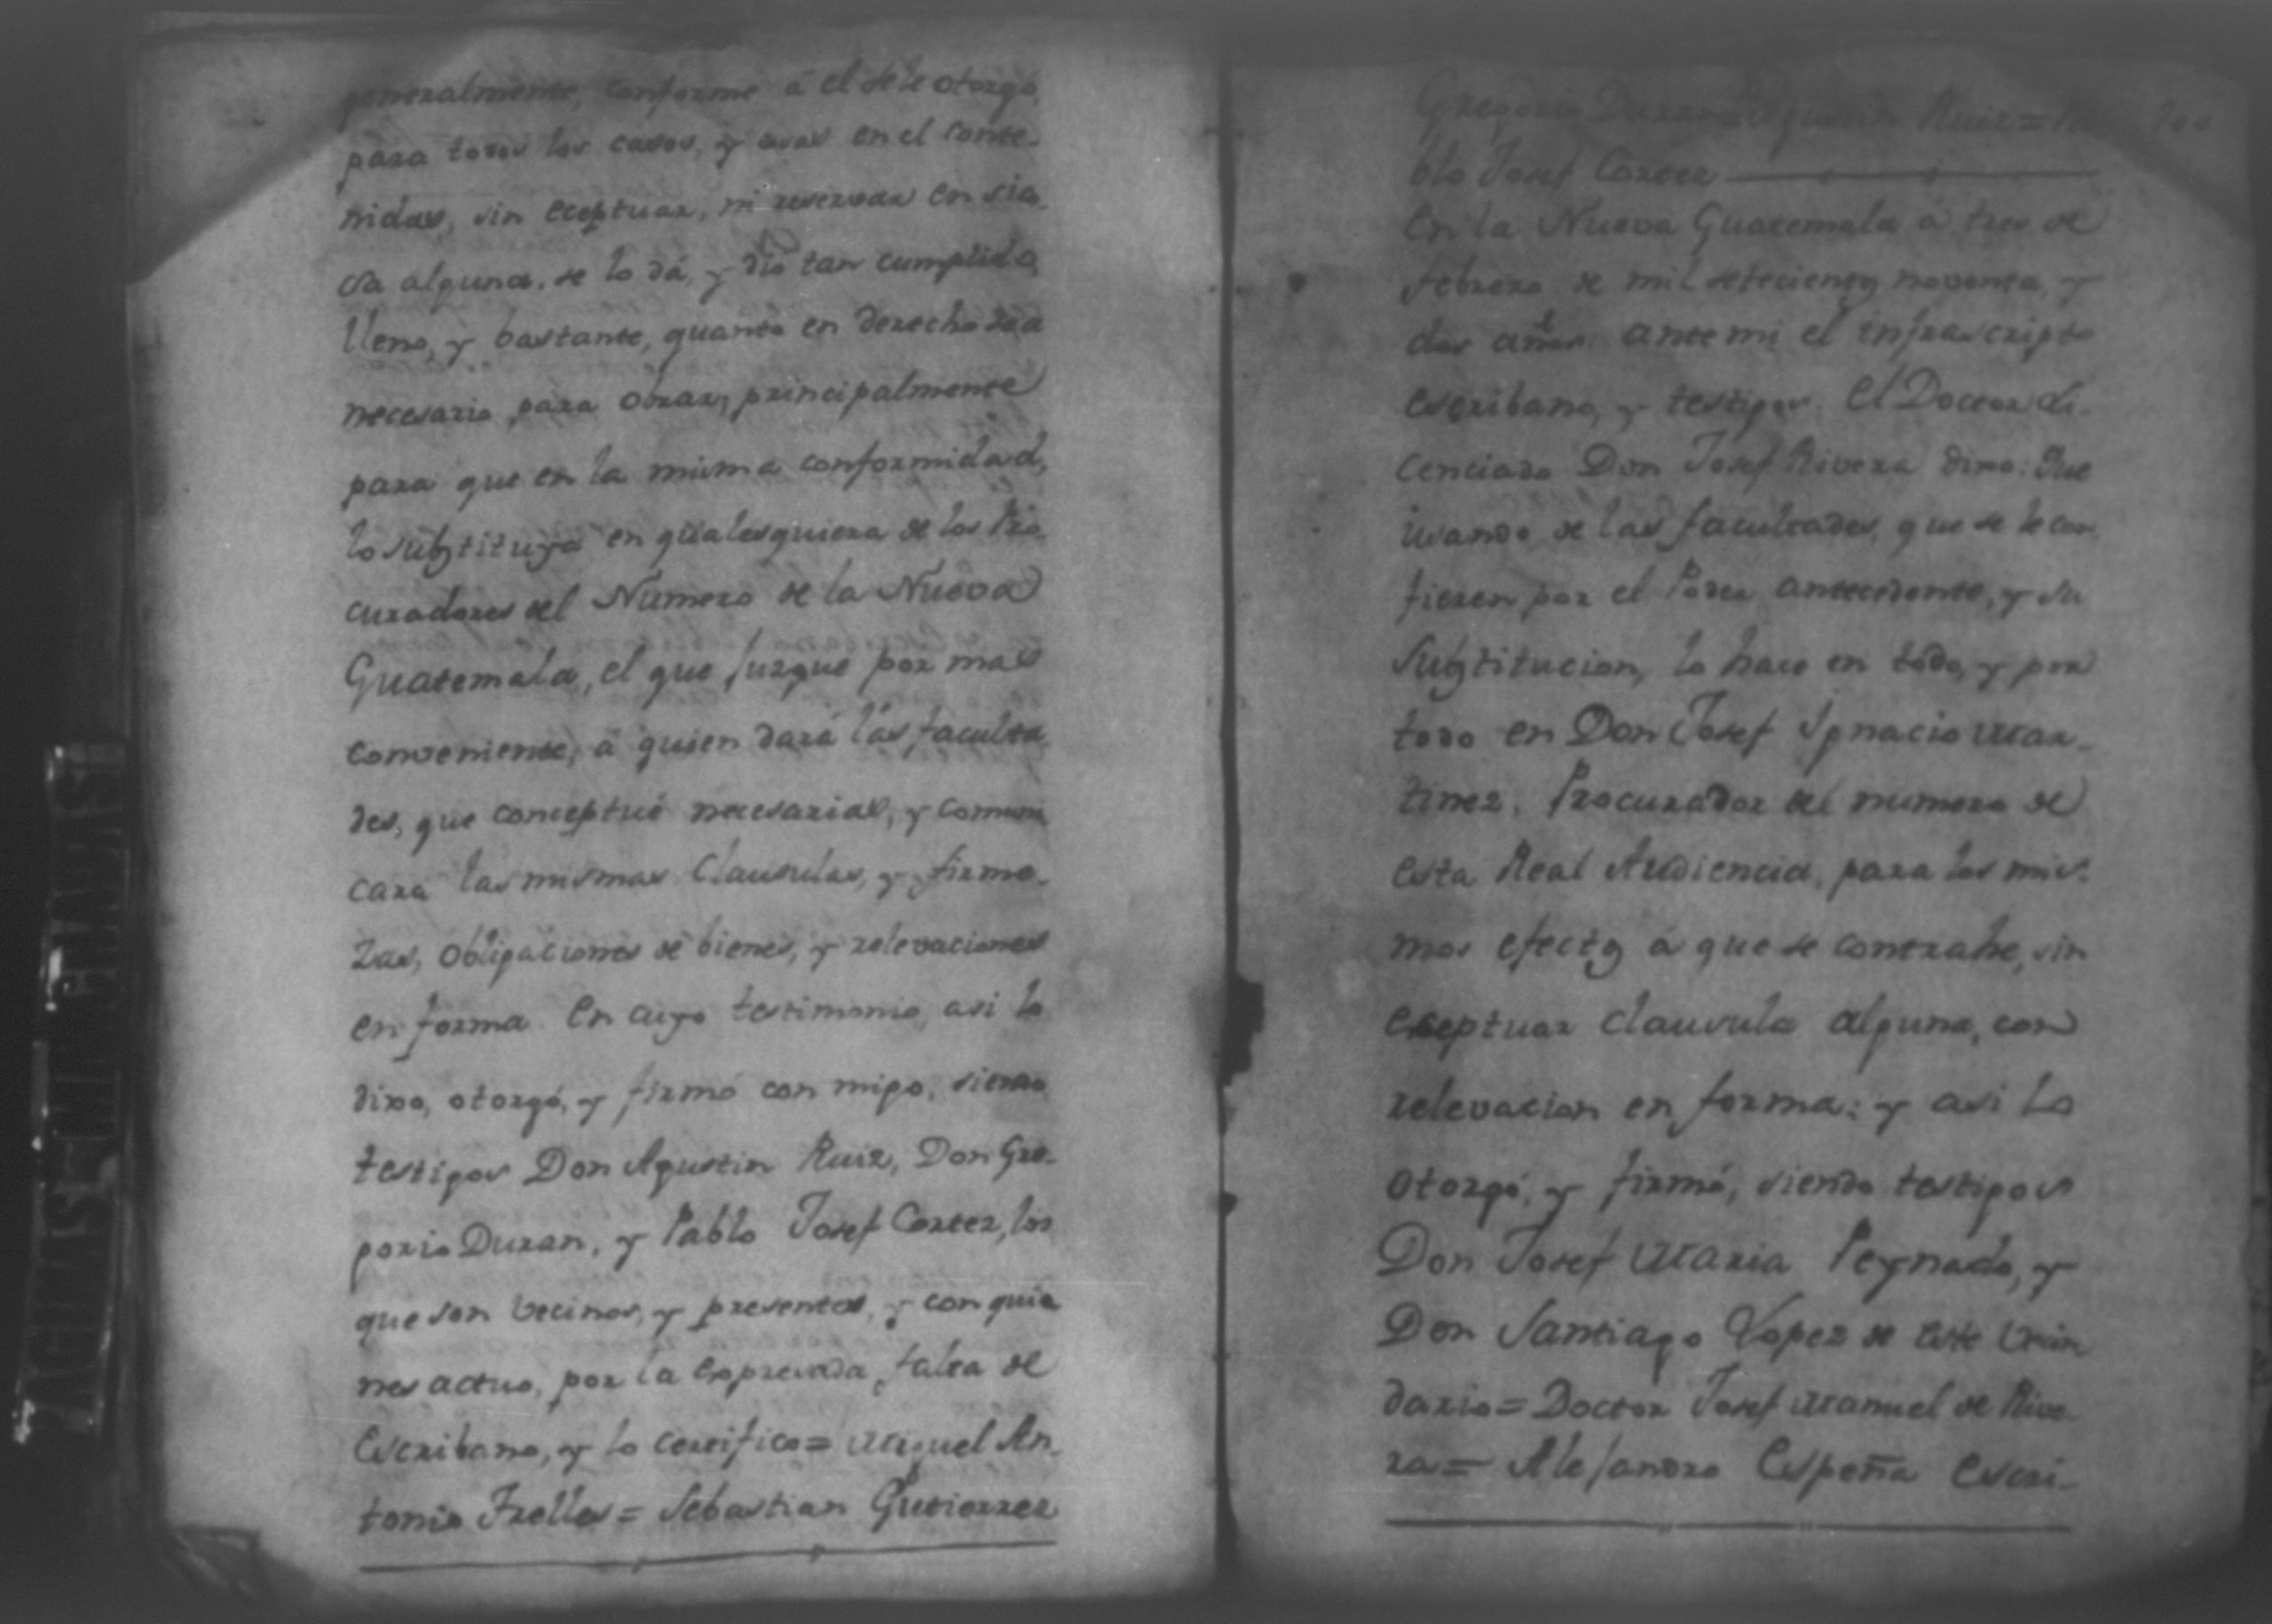 generalmente, conforme á el se le otorgó,
para todos los casos, y cosas en el conte-
nidas, sin eceptuar, ni reservar en sia
sa alguna, se lo dá, y dio tan cumplido,
lleno, y bastante, quanto en derecho sea
necesario para obrar, principalmente
para que en la misma conformidad,
lo subztituya en qualesquiera de los Pro
curadores del Numero de la Nueva
Guatemala, el que Jusgue por mas
conveniente, á quien dará las faculta
des, que conceptué necesarias, y comuni
cara las mismas Clausulas, y firme-
zas, obligaciones de bienes, y relevaciones
en forma. En cuyo testimonio, asi lo
dixo, otorgó, y firmó con migo, siendo
testigos Don Agustin Ruiz, Don Gre-
gorio Duran, y Pablo Josef Cortez, los
que son vecinos, y presentes, y con quie
nes actuo, por la expresada falta de
Escribano, y lo certifico = Miguel An-
tonio Trelles = Sebastian Gutierrez
Gregorio Duran = Agustin Ruiz = Pa
blo Josef Cortez
En la Nueva Guatemala á tres de
febrero de mil setecientos noventa, y
dos años: ante mi el infrascripto
escribano, y testigos: El Doctor Li-
cenciado Don Josef Rivera dixo: Que
usando de las facultades, que se le con
fieren por el Poder antecedente, y su
Subztitucion, lo hace en todo, y por
todo en Don Josef Ignacio Mar-
tinez, Procurador del numero de
esta Real Audiencia, para los mis-
mos efectos á que se contrahe, sin
exceptuar clausula alguna, con
relevacion en forma: y asi lo
otorgó, y firmó, siendo testigos
Don Josef Maria Peynado, y
Don Santiago Lopez de este Vecin
dario = Doctor Josef Manuel de Rive-
ra = Alejandro España Escri-